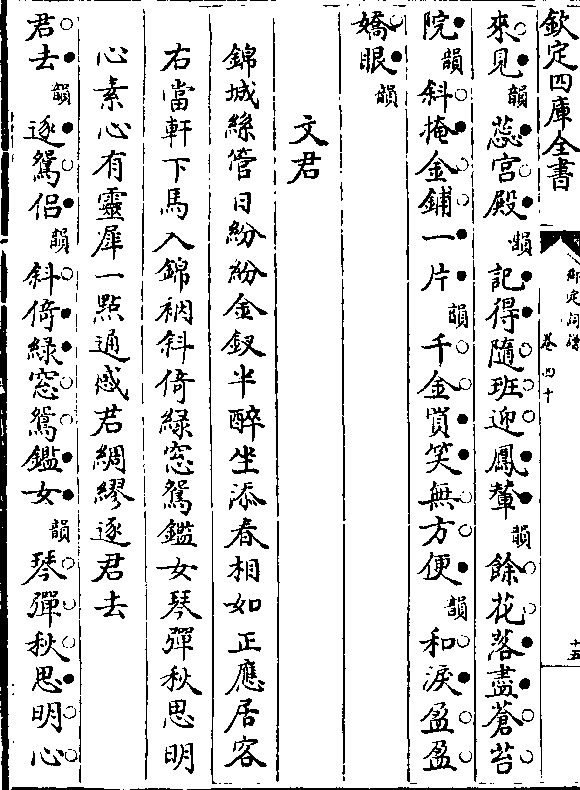 欽定四庫全書
御定詞譜
卷四十
十五
來見韻蕊宮殿韻記得隨班迎鳳輦韻餘花落盡蒼苔
院韻斜掩金鋪一片韻千金買笑無方便韻和淚盈盈
嬌眼韻
文君
錦城絲管日紛紛金釵半醉坐添春相如正應居客
右當軒下馬入錦裀斜倚綠窓鴛鑑女琴彈秋思明
心素心有靈犀一點通感君綢繆逐君去
君去韻逐鴛侣韻斜倚綠窓鴛鑑女韻琴彈秋思明心